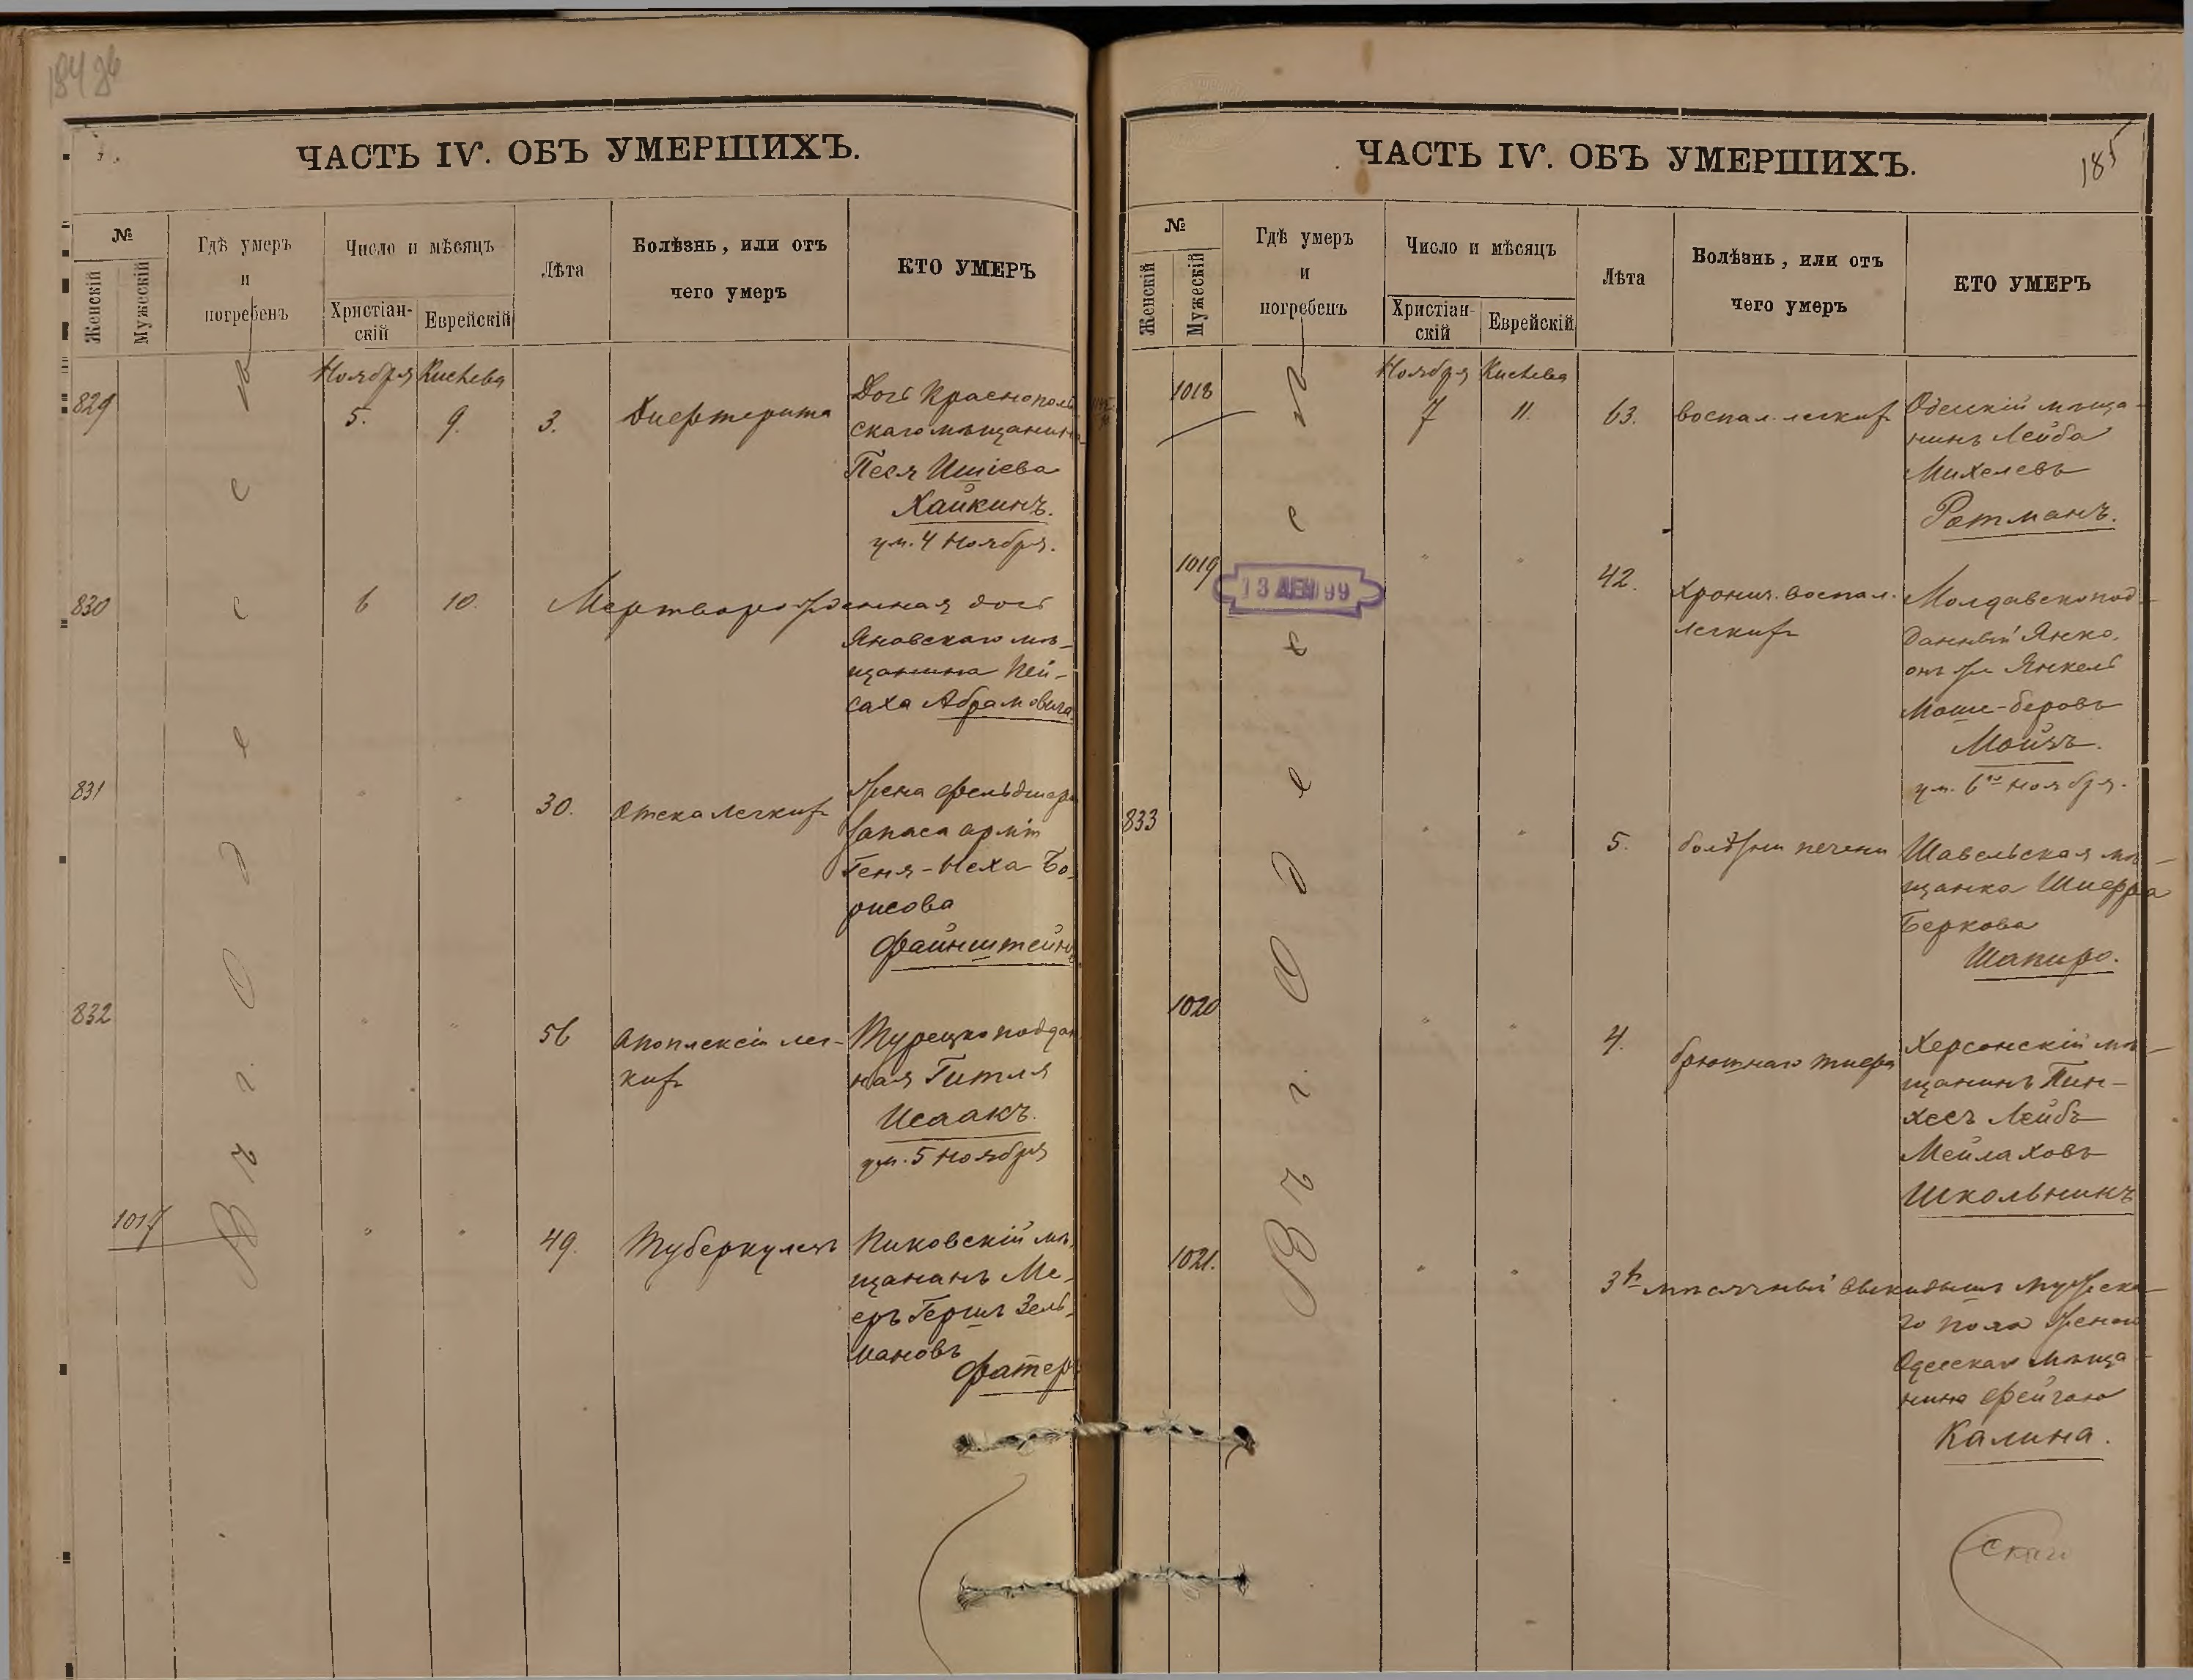 184 об
ЧАСТЬ IV. ОБЪ УМЕРШИХЪ.
№
Женскій
Мужескій
Гдѣ умеръ
и
погребенъ
Число и мѣсяцъ
Христіан-
скій
Еврейскій
Лѣта
Болѣзнь, или отъ
чего умеръ
КТО УМЕРЪ
Въ г. Одессѣ
Ноября Кислева
829
5. 9. 3. Дифтерита
Дочь Краснополь
скаго мѣщанина
Песя Ишіева
Хайкинъ.
ум. 4 Ноября.
830
6 10. Мертворожденная дочь
Яновскаго мѣ-
щанина Пей-
саха Абрамовича
831
" " 30. Отека легкихъ
Жена фельдшера
запаса арміи
Геня-Неха Бо-
рисова
Файнштейнъ
832
" " 56 Апоплексіи лег-
кихъ
Турецкоподдан
ная Гитля
Исаакъ.
ум. 5 Ноября
1017
" " 49. Туберкулезъ
Пиковскій мѣ-
щанинъ Ме-
еръ Гершъ Зель-
мановъ
Фатеръ
ЧАСТЬ IV. ОБЪ УМЕРШИХЪ.
185
№
Женскій
Мужескій
Гдѣ умеръ
и
погребенъ
Число и мѣсяцъ
Христіан-
скій
Еврейскій
Лѣта
Болѣзнь, или отъ
чего умеръ
КТО УМЕРЪ
Въ г. Одессѣ
Ноября Кислева
1018
7 11. 63. воспал. легкихъ
Одесскій мѣща-
нинъ Лейба
Михелевъ
Ротманъ.
1019
13 ДЕК 99
" " 42. Хронич. воспал.
легкихъ
Молдавскопод-
данный Янко,
онъ же Янкель
Моше-Беровъ
Мойзъ.
ум. 6го Ноября.
833
" " 5. болѣзни печени
Шавельская мѣ-
щанка Шифра
Беркова
Шапиро.
1020
" " 4. брюшнаго тифа
Херсонскій мѣ-
щанинъ Пин-
хесъ Лейбъ
Мейлаховъ
Школьникъ
1021.
" " 3хъ мѣсячный выкидышъ мужска-
го пола женою
Одесскаго мѣща-
нина Фейгою
Калина.